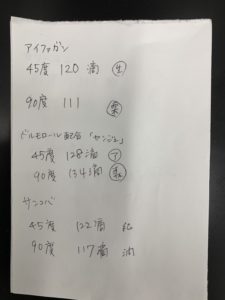 アイファガン
45度 120 滴
90度 111
ピルモロール 配合「センジュ」
45度 128滴
90度 134滴
サンコバ
45度 122滴
90度 117滴